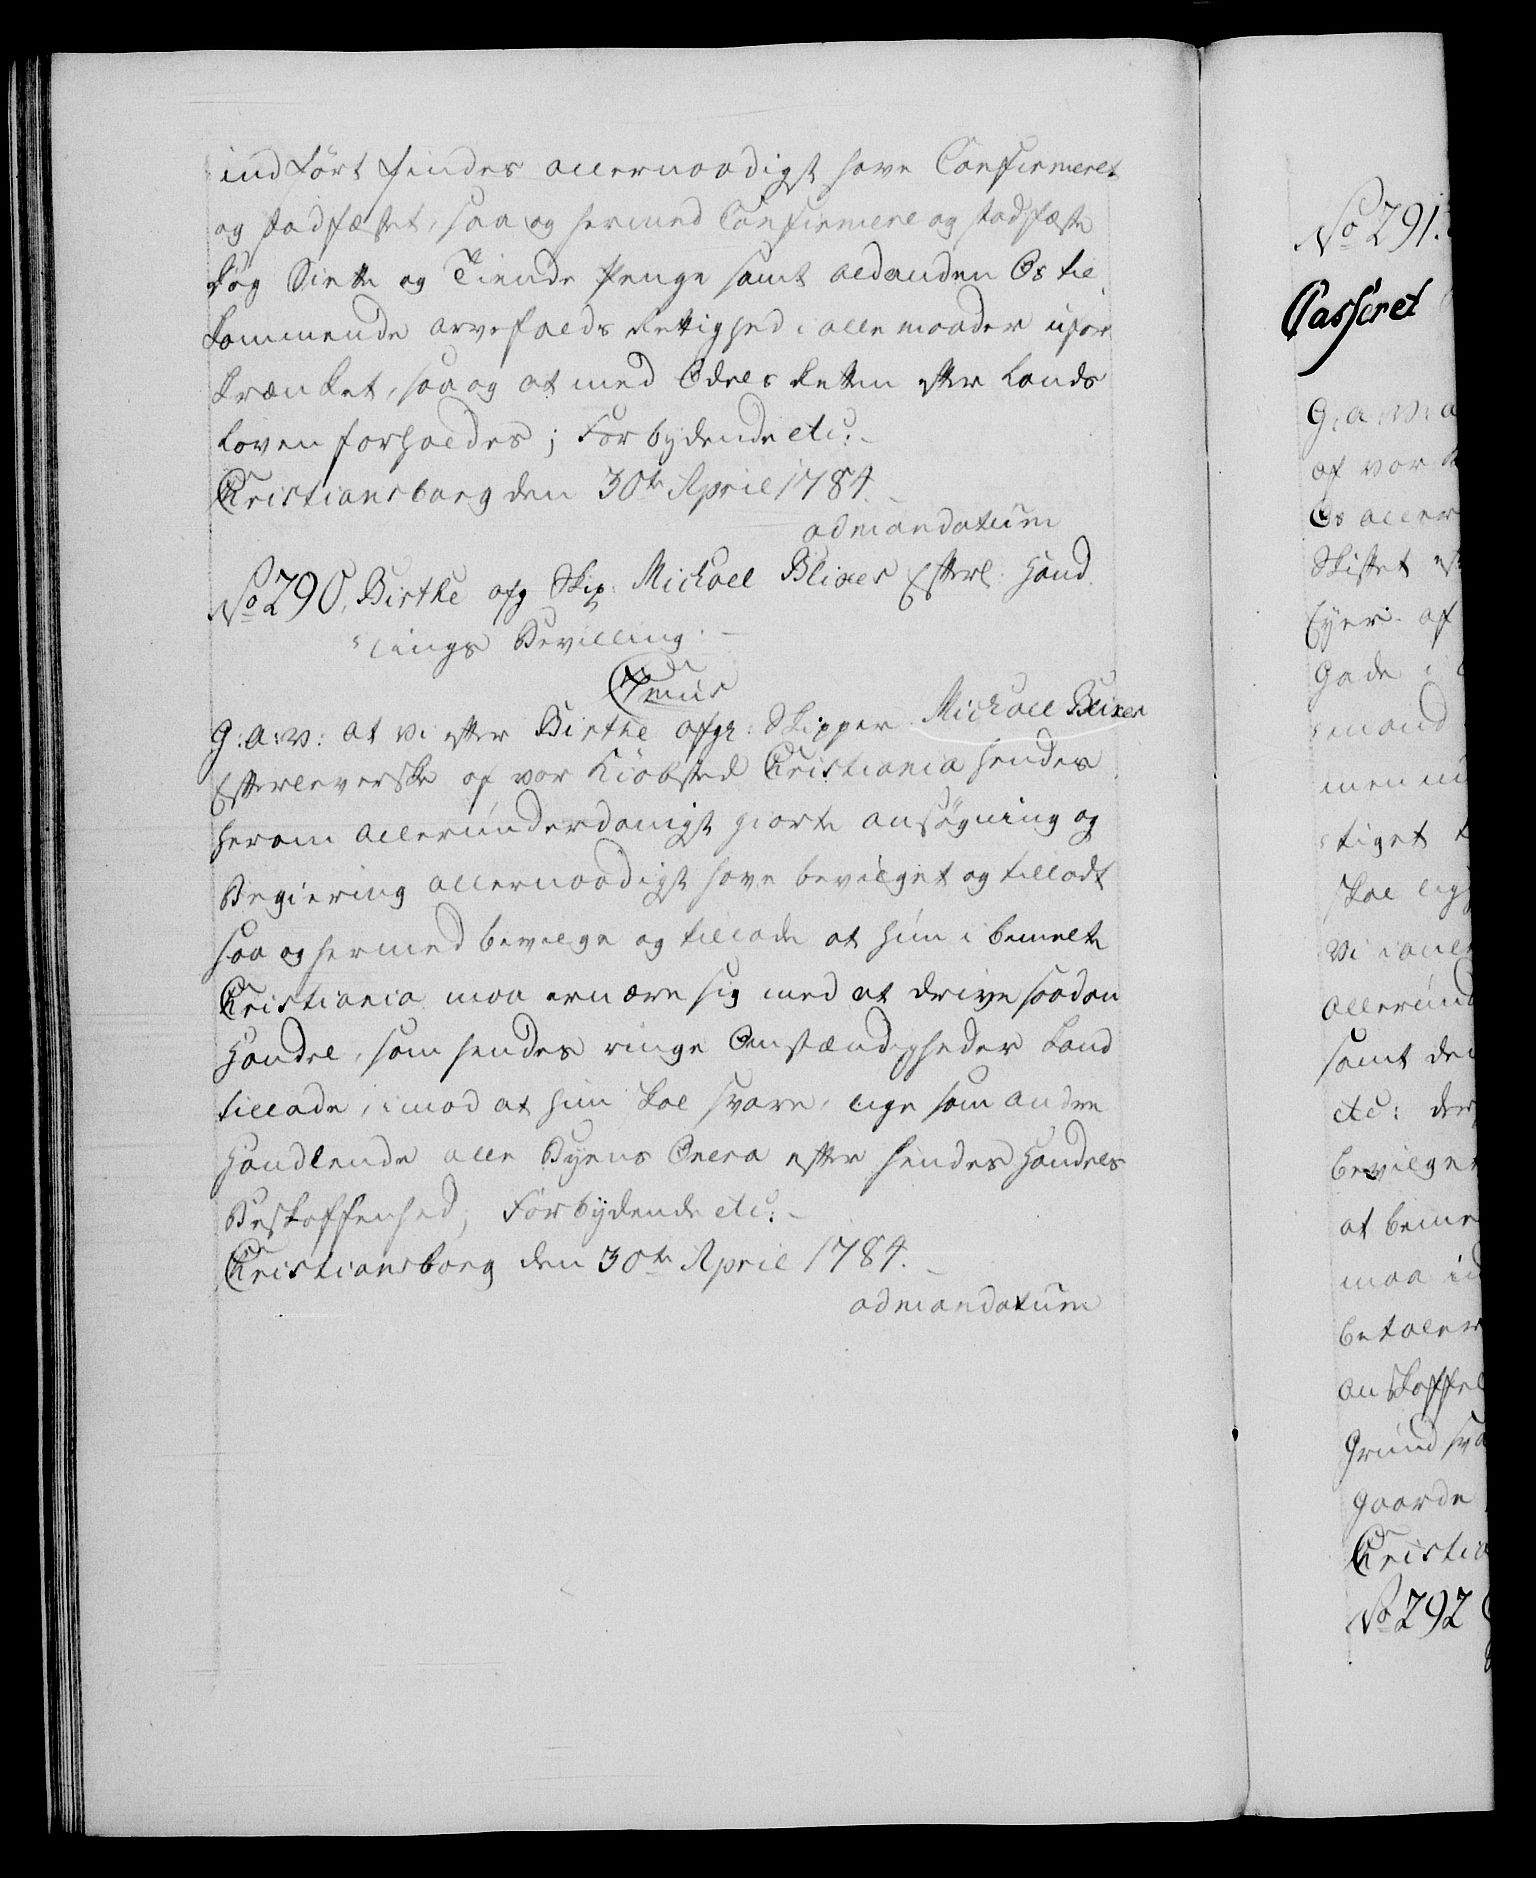 indført findes allernaadigst have Confirmeret
og stadfæstet, saa og hermed Confirmere og stadfæste
dog Siette og Tiende Penge samt ald anden Os til
kommende arvefalds Rettighed i alle maader ufor
krænket, saa og at med Odels Retten efter Lands
Loven forholdes; Forbydende etc:
Christiansborg den 30te April 1784.
ad mandatum
No 290. Birthe afg Skip: Michael Blixes Efterl: Hand
lings Bevilling.
C7mus
G: a: v: at vi efter Birthe afgr: Skipper Michael Blixes
Efterleverske af vor Kiøbsted Christiania hendes
herom allerunderdanigst giorte ansøgning og
Begiering allernaadigst have bevilget og tilladt
saa og hermed bevilge og tillade at hun i bemelte
Christiania maa ernære sig med at drive saadan
Handel, som hendes ringe Omstændigheder kand
tillade, imod at hun skal svare, lige som andre
Handlende alle Byens Onera efter hendes Handels
Beskaffenhed; Forbydende etc:
Christiansborg den 30te April 1784.
ad mandatum
No 291.
Casseret
G: a: v: a
af vor
Os aller
Skiftet ef
Eyer af
Gade i
mand
men
tiget
skal
Vi i
allerund
samt den
etc: der
bevilge
at beme
maa
betaler
anskaffe
Grund sva
gaarde
Christia
No 292